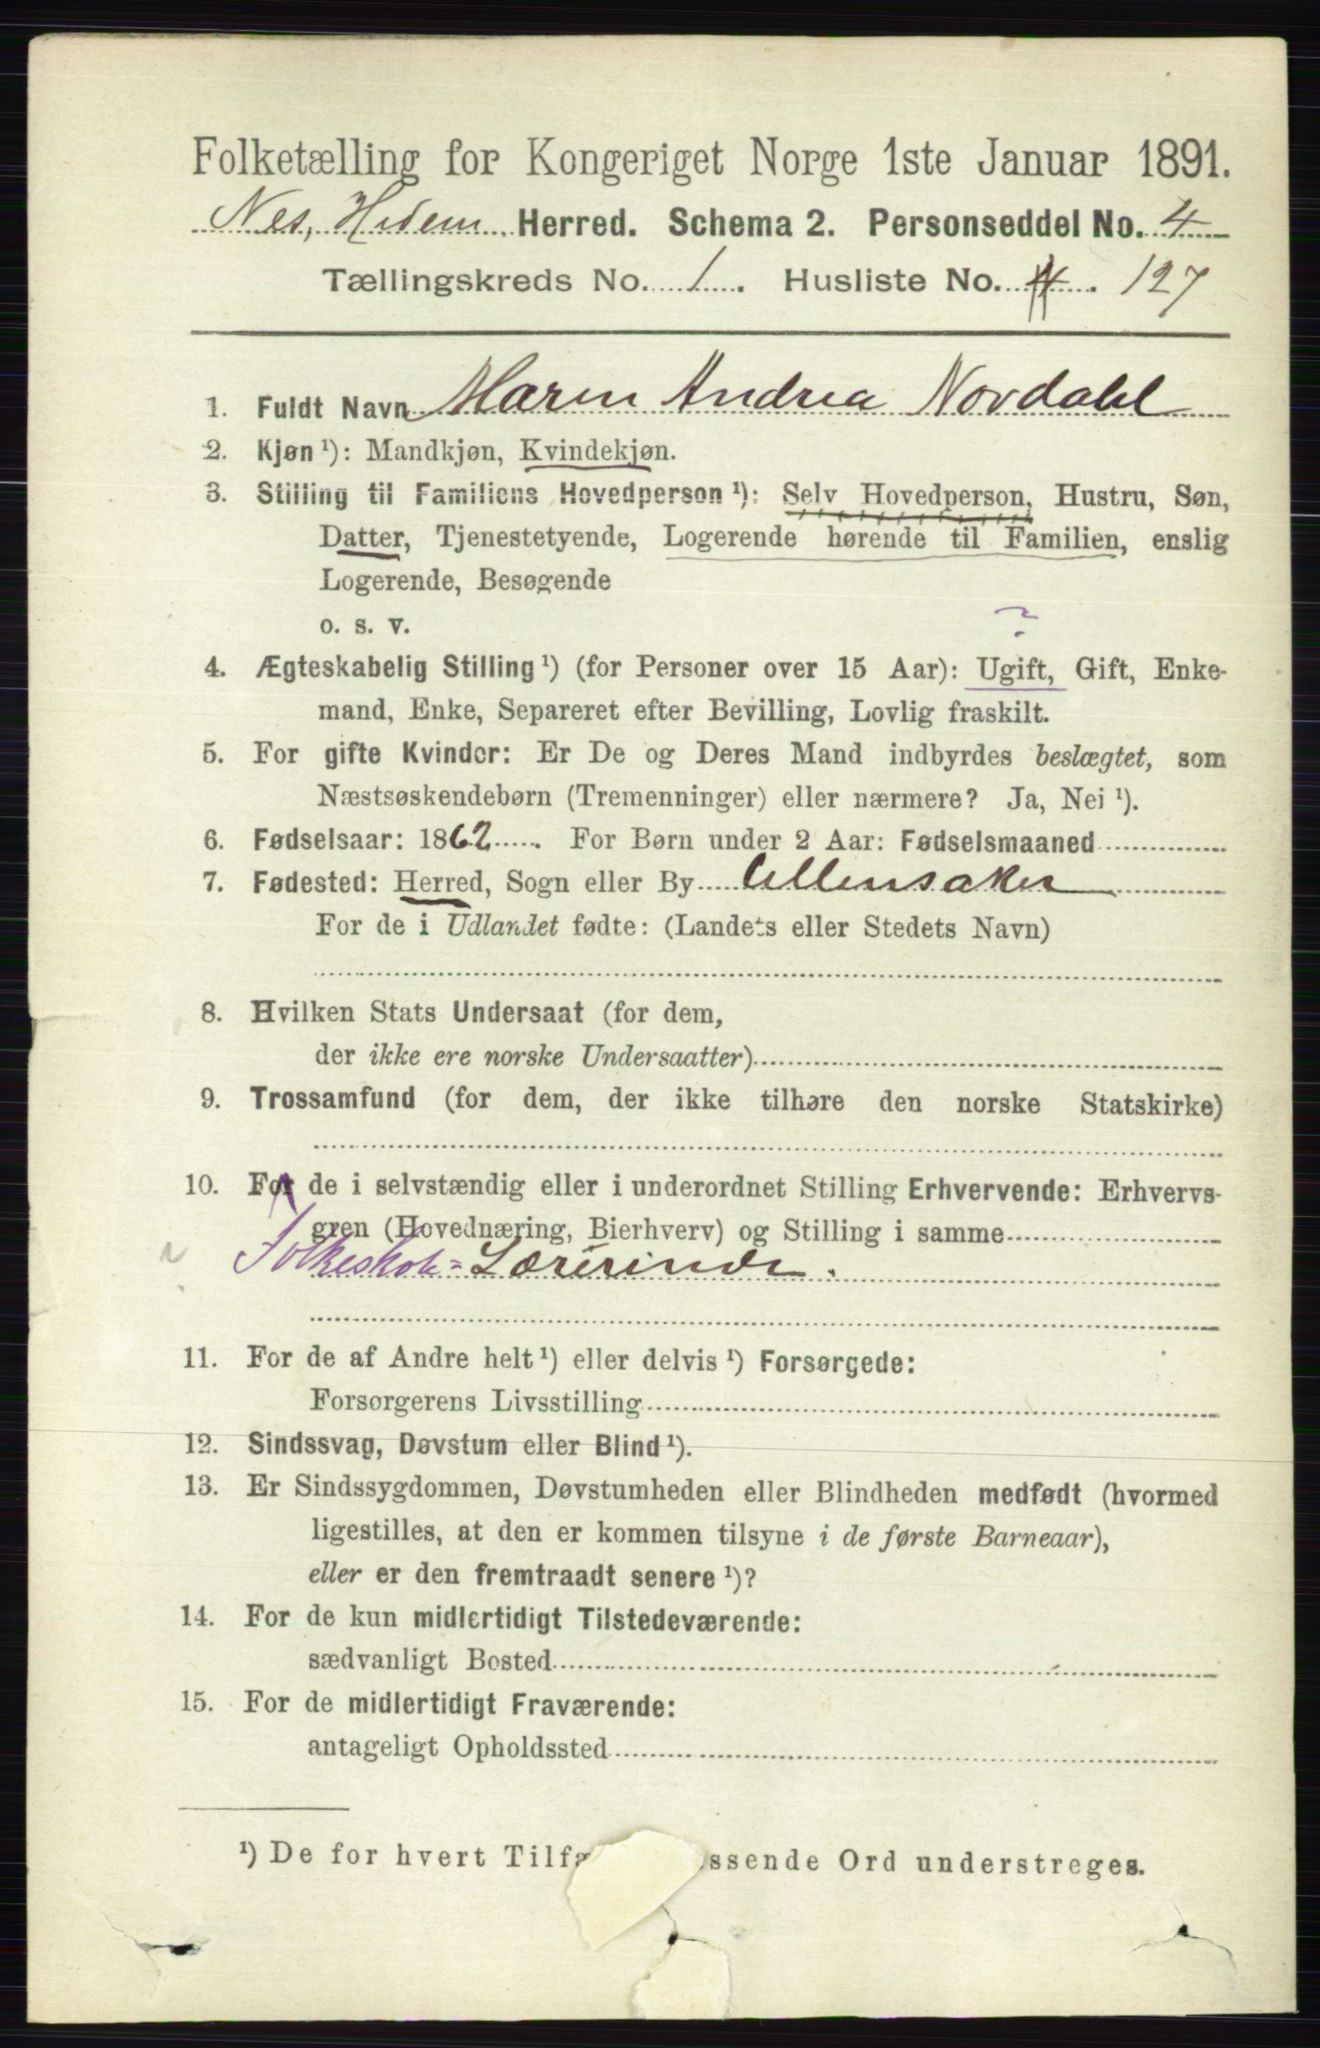 Folketælling for Kongeriget Norge 1ste Januar 1891.
Nes, Hedem. Herred. Schema 2. Personseddel No. 4
Tællingskreds No. 1. Husliste No. 4. 127
1. Fuldt Navn Maren Andrea Nordahl
2. Kjøn ¹): Mandkjøn, Kvindekjøn.
3. Stilling til Familiens Hovedperson ¹): Selv Hovedperson, Hustru, Søn,
Datter, Tjenestetyende, Logerende hørende til Familien, enslig
Logerende, Besøgende
o. s. v.
?
4. Ægteskabelig Stilling ¹) (for Personer over 15 Aar): Ugift, Gift, Enke-
mand, Enke, Separeret efter Bevilling, Lovlig fraskilt.
5. For gifte Kvinder: Er De og Deres Mand indbyrdes beslægtet, som
Næstsøskendebørn (Tremenninger) eller nærmere? Ja, Nei ¹).
6. Fødselsaar: 1862. For Børn under 2 Aar: Fødselsmaaned
7. Fødested: Herred, Sogn eller By Ullensaker
For de i Udlandet fødte: (Landets eller Stedets Navn)
8. Hvilken Stats Undersaat (for dem,
der ikke ere norske Undersaatter)
9. Trossamfund (for dem, der ikke tilhøre den norske Statskirke)
10. For de i selvstændig eller i underordnet Stilling Erhvervende: Erhvervs-
gren (Hovednæring, Bierhverv) og Stilling i samme
Folkeskole= Lærerinde.
11. For de af Andre helt ¹) eller delvis ¹) Forsørgede:
Forsørgerens Livsstilling
12. Sindssvag, Døvstum eller Blind ¹).
13. Er Sindssygdommen, Døvstumheden eller Blindheden medfødt (hvormed
ligestilles, at den er kommen tilsyne i de første Barneaar),
eller er den fremtraadt senere ¹)?
14. For de kun midlertidigt Tilstedeværende:
sædvanligt Bosted
15. For de midlertidigt Fraværende:
antageligt Opholdssted
¹) De for hvert Tilfæ ssende Ord understreges.